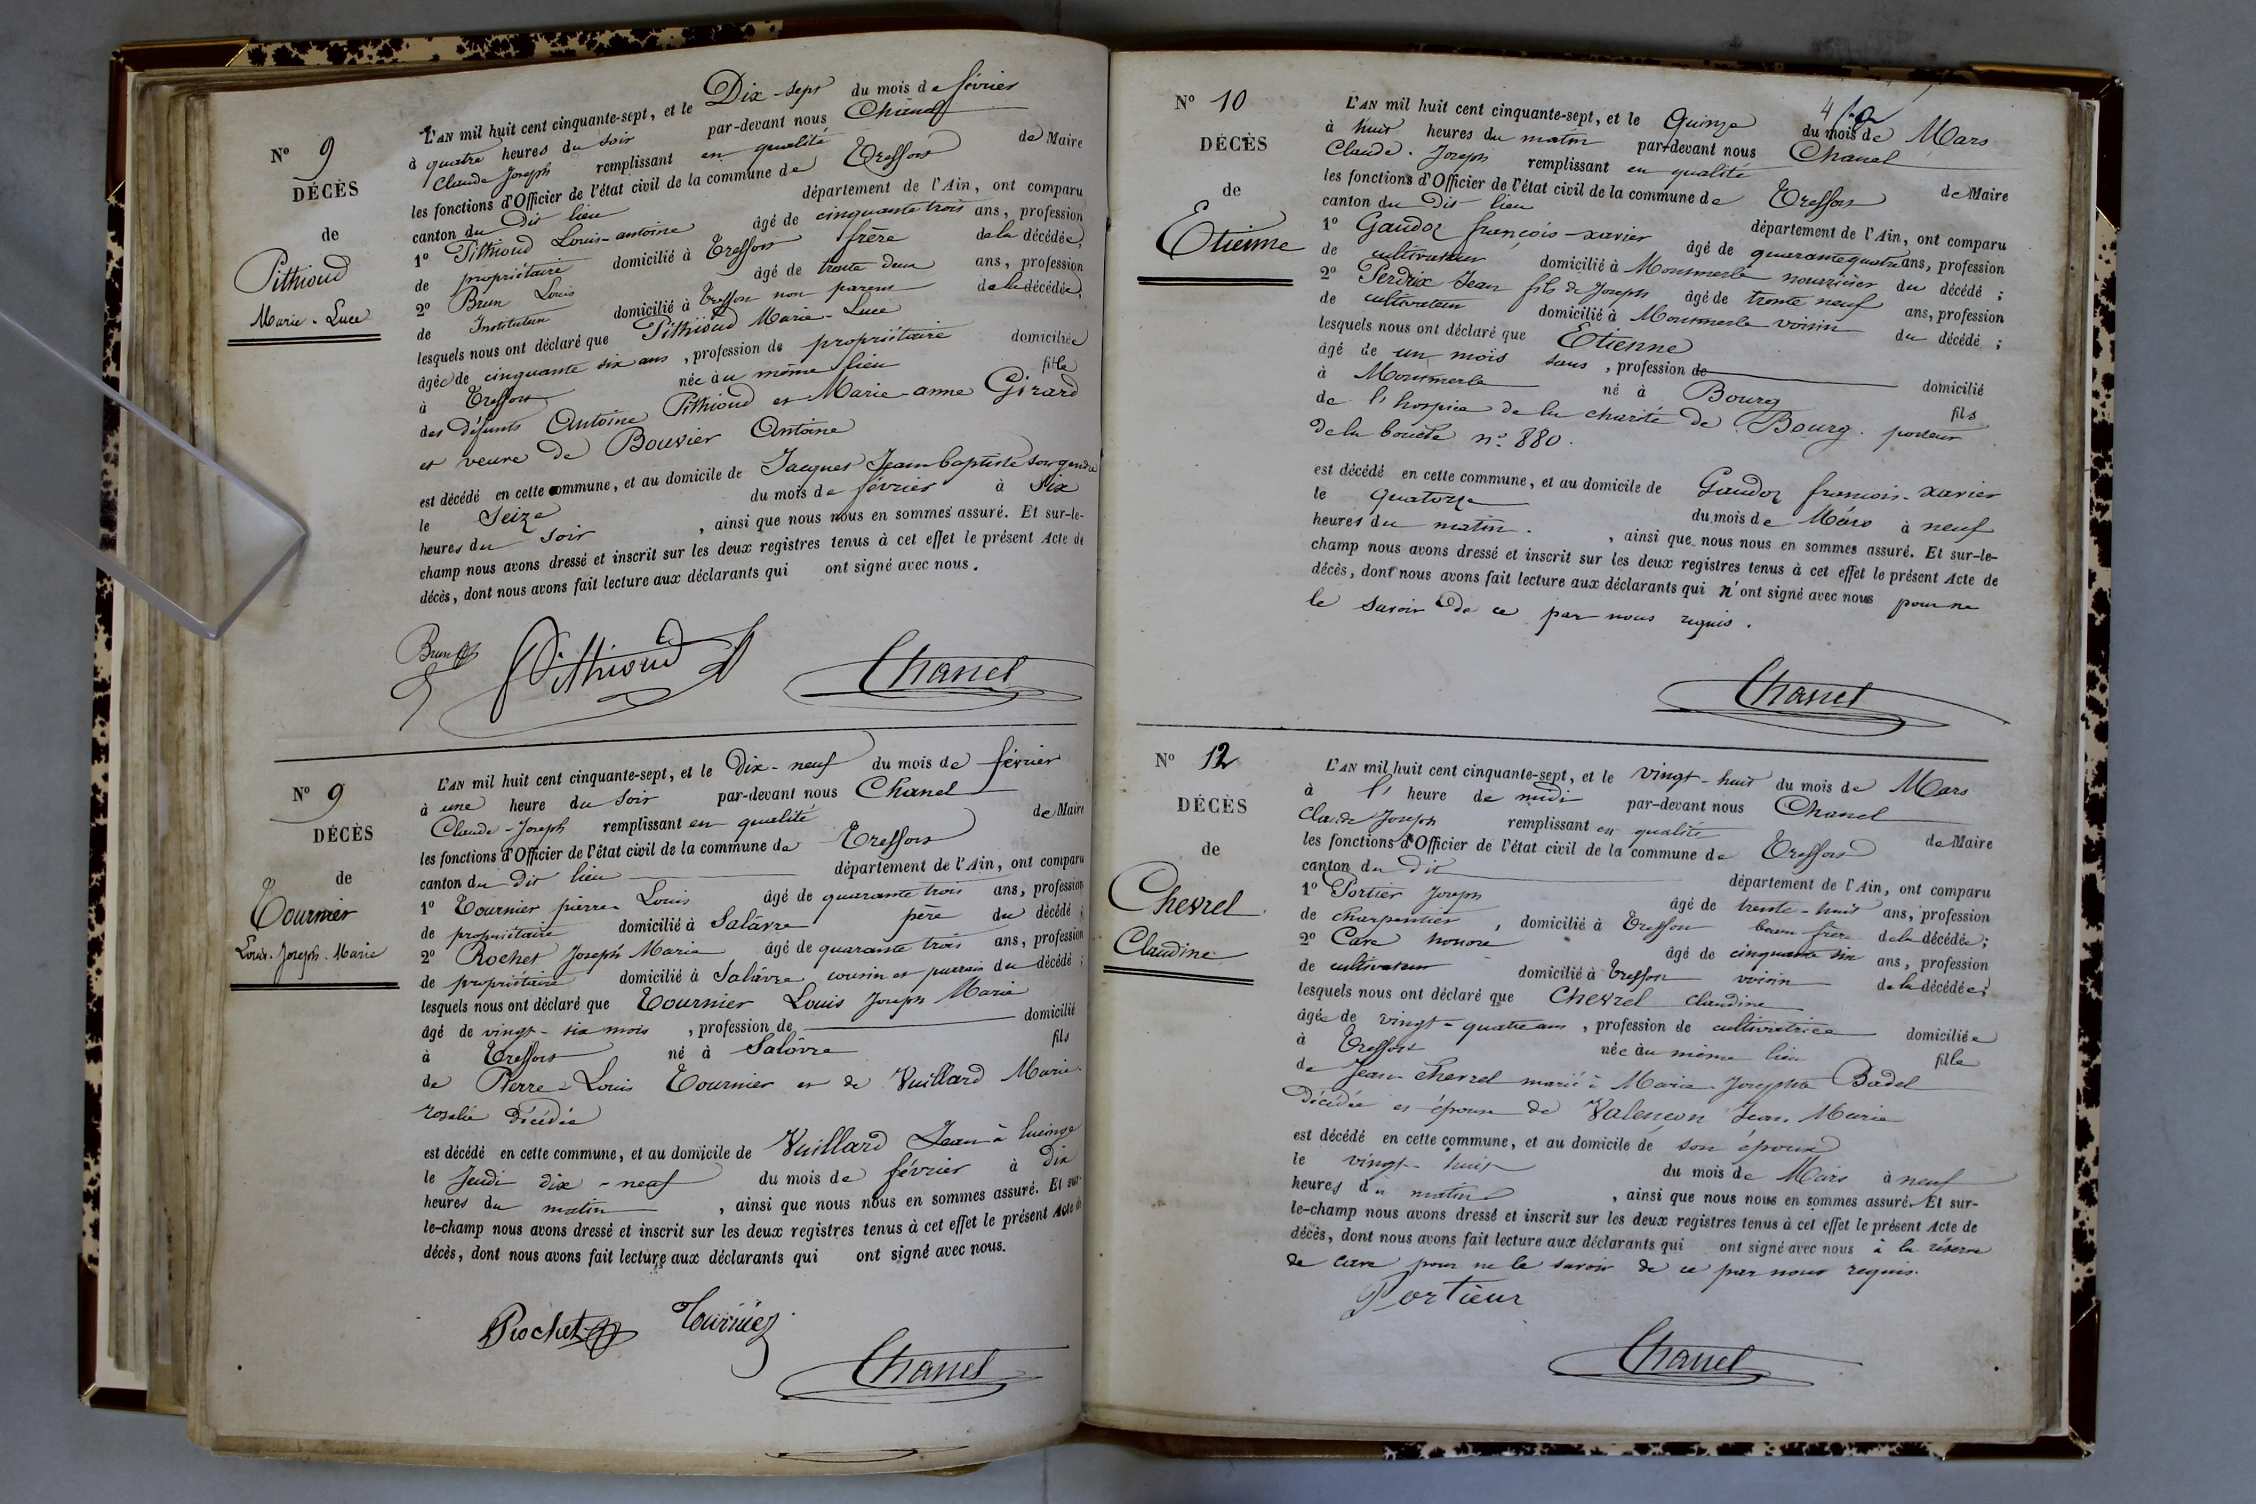 N° 9
DÉCÈS
de
Pithioud
Marie-Luce
L'AN mil huit cent cinquante-sept, et le Dix-sept du mois de février
à quatre heures du soir par-devant nous Chanel
Claude Joseph remplissant en qualité de Maire
les fonctions d'Officier de l'état civil de la commune de Treffort
canton du dit lieu département de l'Ain, ont comparu
1° Pithioud Louis-antoine âgé de cinquante trois ans, profession
de propriétaire domicilié à Treffort frère de la décédée,
2° Brun Louis âgé de trente deux ans, profession
de Instituteur domicilié à Treffort non parent de la décédée,
lesquels nous ont déclaré que Pithioud Marie-Luce
âgée de cinquante six ans, profession de propriétaire domiciliée
à Treffort née au même lieu fille
des défunts Antoine Pithioud et Marie-anne Girard
et veuve de Bouvier Antoine
est décédé en cette commune, et au domicile de Jacquet Jean baptiste son gendre
le Seize du mois de février à Six
heures du soir, ainsi que nous nous en sommes assuré. Et sur-le-
champ nous avons dressé et inscrit sur les deux registres tenus à cet effet le présent Acte de
décès, dont nous avons fait lecture aux déclarants qui ont signé avec nous.
Brun Pithioud Chanel
N° 9
DÉCÈS
de
Tournier
Louis-Joseph-Marie
L'AN mil huit cent cinquante-sept, et le Dix-neuf du mois de février
à une heure du soir par-devant nous Chanel
Claude-Joseph remplissant en qualité de Maire
les fonctions d'Officier de l'état civil de la commune de Treffort
canton du dit lieu département de l'Ain, ont comparu
1° Tournier pierre Louis âgé de quarante trois ans, profession
de propriétaire domicilié à Salavre père du décédé ;
2° Rochet Joseph Maria âgé de quarante trois ans, profession
de propriétaire domicilié à Salavre cousin et parrain du décédé ;
lesquels nous ont déclaré que Tournier Louis Joseph Marie
âgé de vingt-six mois, profession de domicilié
à Treffort né à Salavre fils
de Pierre-Louis Tournier et de Vuillard Marie
rosalie Décédée
est décédé en cette commune, et au domicile de Vuillard Jean à lucinge
le Jeudi dix-neuf du mois de février à dix
heures du matin, ainsi que nous nous en sommes assuré. Et sur-
le-champ nous avons dressé et inscrit sur les deux registres tenus à cet effet le présent Acte de
décès, dont nous avons fait lecture aux déclarants qui ont signé avec nous.
Rochet Tournier
Chanel
N° 10
DÉCÈS
de
Etienne
L'AN mil huit cent cinquante-sept, et le Quinze du mois de Mars
à huit heures du matin par-devant nous Chanel
Claude-Joseph remplissant en qualité de Maire
les fonctions d'Officier de l'état civil de la commune de Treffort
canton du Dit lieu département de l'Ain, ont comparu
1° Gaudoz françois-xavier âgé de quarante quatre ans, profession
de cultivateur domicilié à Montmerle nourricier du décédé ;
2° Perdrix Jean fils de Joseph âgé de trente neuf ans, profession
de cultivateur domicilié à Montmerle voisin du décédé ;
lesquels nous ont déclaré que Etienne
âgé de un mois sans, profession de domicilié
à Montmerle né à Bourg fils
de l'hospice de la charité de Bourg. porteur
de la boucle n° 880.
est décédé en cette commune, et au domicile de Gaudoz francois-xavier
le quatorze du mois de Mars à neuf
heures du matin., ainsi que nous nous en sommes assuré. Et sur-le-
champ nous avons dressé et inscrit sur les deux registres tenus à cet effet le présent Acte de
décès, dont nous avons fait lecture aux déclarants qui n'ont signé avec nous pour ne
le savoir de ce par nous requis.
Chanel
N° 12
DÉCÈS
de
Chevrel
Claudine
L'AN mil huit cent cinquante-sept, et le vingt-huit du mois de Mars
à l'heure de midi par-devant nous Chanel
Claude Joseph remplissant en qualité de Maire
les fonctions d'Officier de l'état civil de la commune de Treffort
canton du dit département de l'Ain, ont comparu
1° Portier Joseph âgé de trente-huit ans, profession
de charpentier, domicilié à Treffort beau frère de la décédée;
2° Cave honoré âgé de cinquante six ans, profession
de cultivateur domicilié à Treffort voisin de la décédée;
lesquels nous ont déclaré que Chevrel Claudine
âgée de vingt-quatre ans, profession de cultivatrice domiciliée
à Treffort née au même lieu fille
de Jean Chevrel marié à Marie-Josephte Badel
Décédée et épouse de Valençon Jean Marie
est décédé en cette commune, et au domicile de son époux
le vingt-huit du mois de Mars à neuf
heures du matin, ainsi que nous nous en sommes assuré. Et sur-
le-champ nous avons dressé et inscrit sur les deux registres tenus à cet effet le présent Acte de
décès, dont nous avons fait lecture aux déclarants qui ont signé avec nous à la réserve
de cave pour ne le savoir de ce par nous requis.
Portieur
Chanel